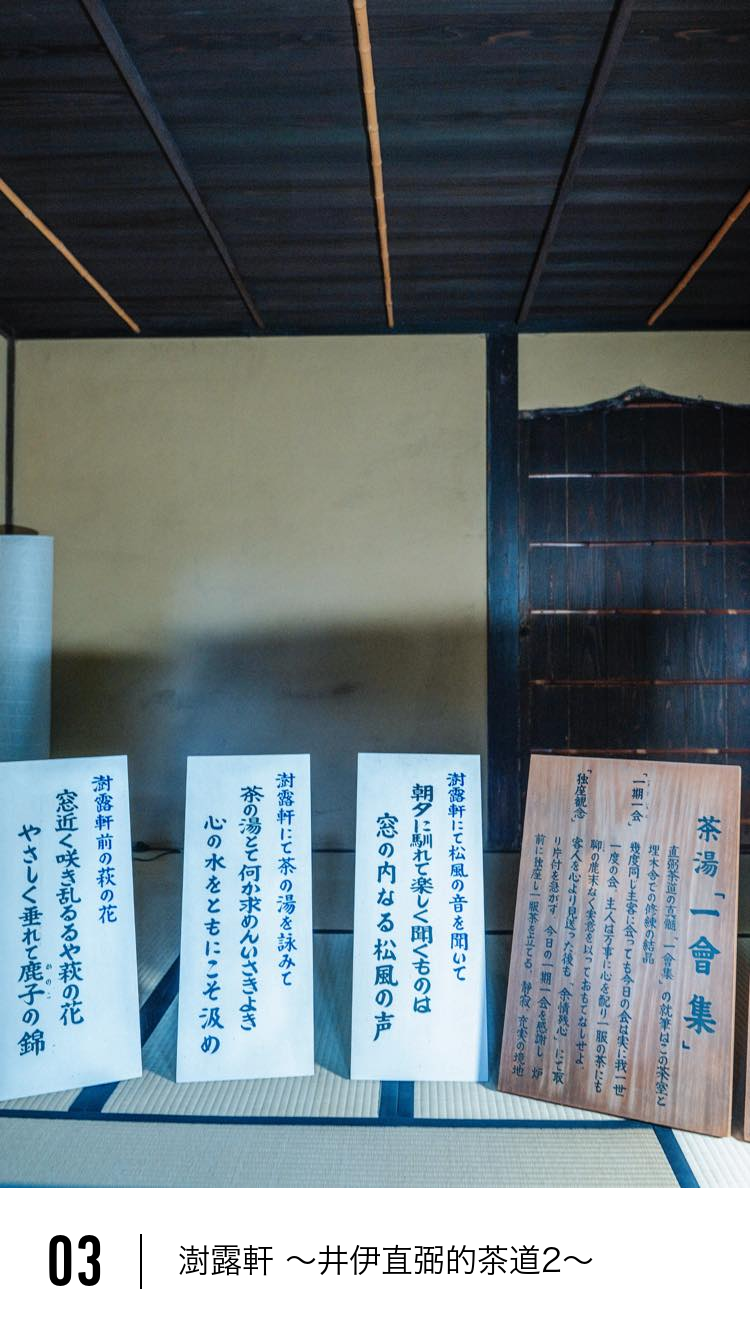 茶湯「一會集」
直弼茶道の真髄「一會集」の執筆はこの茶室と
埋木舎での修練の結晶
「一期一会」
幾度同じ主客に会っても今日の会は実に我一世
一度の会、主人は万事に心を配り一服の茶にも
聊の麁末なく実意を以っておもてなしせよ
「独座観念」
客人を心より見送った後も「余情残心」にて取
り片付を急がず、今日の一期一会を感謝し、炉
前に独座し一服茶を立てる、静寂、充実の境地
澍露軒にて松風の音を聞いて
朝夕に馴れて楽しく聞くものは
窓の内なる松風の声
澍露軒にて茶の湯を詠みて
茶の湯とて何か求めんいさきよき
心の水をともにこそ汲め
澍露軒前の萩の花
窓近く咲き乱るるや萩の花
やさしく垂れて鹿子の錦
かのこ
03
澍露軒 〜井伊直弼的茶道2〜